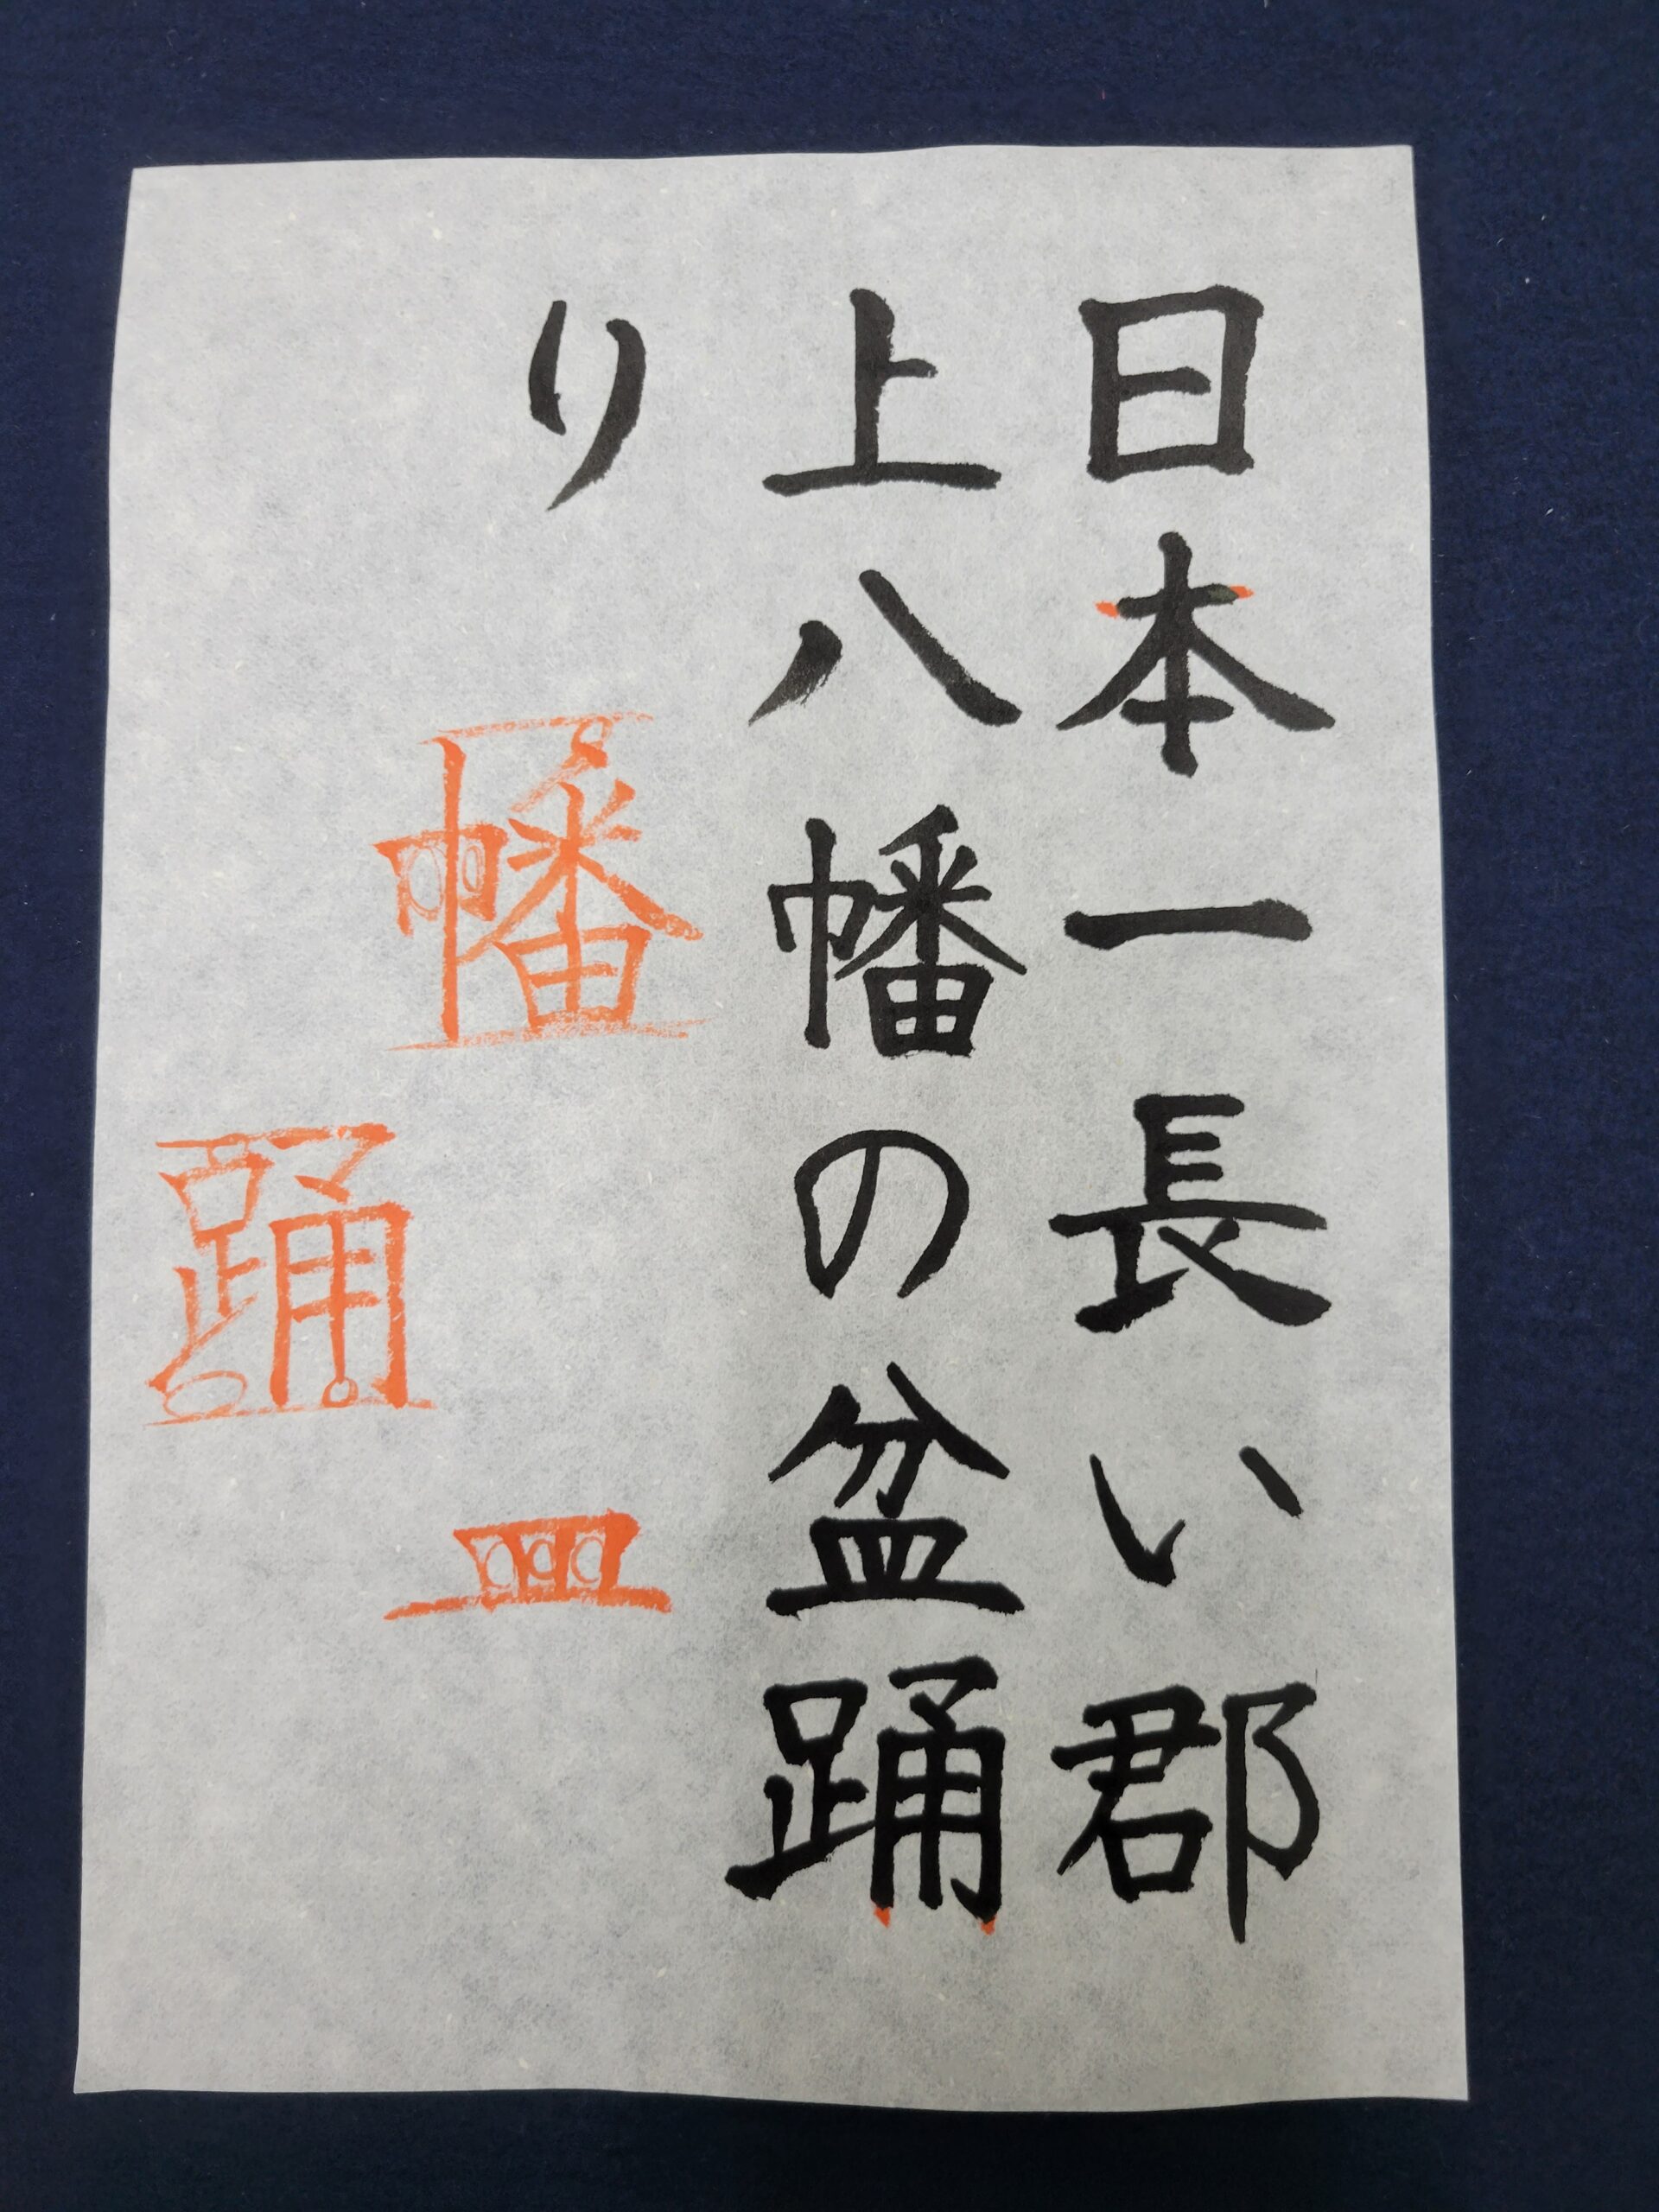 日本一長い郡
上八幡の盆踊
り
幡
踊
皿